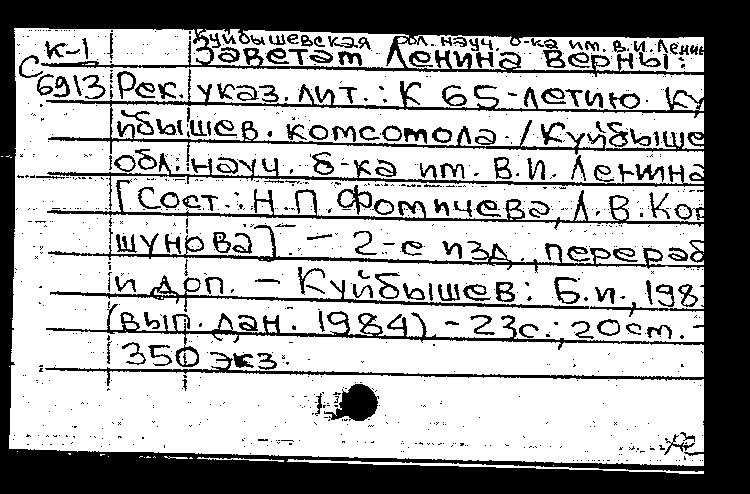 Куйбышевская обл. науч. б-ка им. В.И. Ленин
К-1
Заветам Ленина верны:
С 6913
Рек. указ. лит.: К 65-летию Ку
йбышев. комсомола. / Куйбыше
обл. науч. б-ка им. В.И. Ленина
[Сост.: Н.П. Фомичева, Л.В. Кор
шунова]. - 2-е изд., перераб
и доп. - Куйбышев: Б.и., 198
(вып. дан. 1984) - 23с.; 20см. -
350 экз.